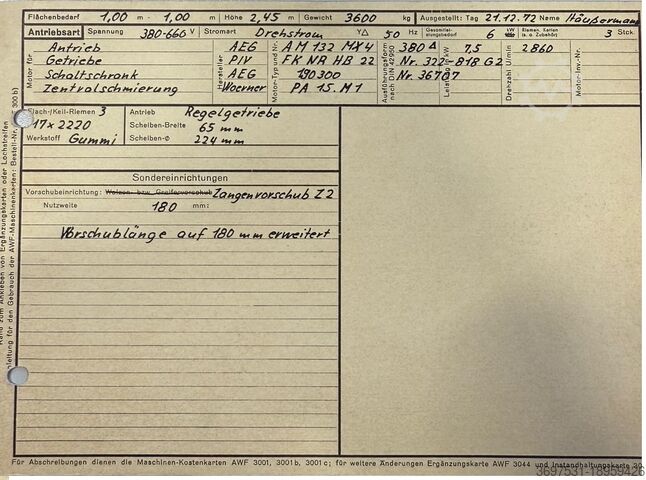 Flächenbedarf 1,00 m - 1,00 m Höhe 2,45 m Gewicht 3600 kg Ausgestellt: Tag 21.12.72 Name Häußermann
Antriebsart Spannung 380-660 V Stromart Drehstrom Y△ 50 Hz Gesamtmittel-entnahmebedarf 6 kW Riemen, Ketten (s. o Zubehör) 3 Stck.
Motor für: Hersteller Motor-Typ und Nr. Ausführungsform nach DIN 42950 Leistg. kW Drehzahl U/min Motor-Inv.-Nr.
Antrieb AEG AM 132 MX4 380 △ 7,5 2860
Getriebe PIV FK NR HB 22 Nr. 322-818 G2
Schaltschrank AEG 190300 Nr. 36787
Zentralschmierung Woerner PA 15. M1
Flach-/Keil-Riemen 3 Antrieb Regelgetriebe
17 x 2220 Scheiben-Breite 65 mm
Werkstoff Gummi Scheiben-⌀ 224 mm
Sondereinrichtungen
Vorschubeinrichtung: Walzen- bzw. Greifervorschub Zangenvorschub Z2
Nutzweite 180 mm:
Vorschublänge auf 180 mm erweitert
Für Abschreibungen dienen die Maschinen-Kostenkarten AWF 3001, 3001b, 3001c; für weitere Änderungen Ergänzungskarte AWF 3044 und Instandhaltungskarte 30
Rand zum Ankleben von Ergänzungskarten oder Lochstreifen
Anleitung für den Gebrauch der AWF-Maschinenkarten: Bestell-Nr. 300 b)
3697531-18959426